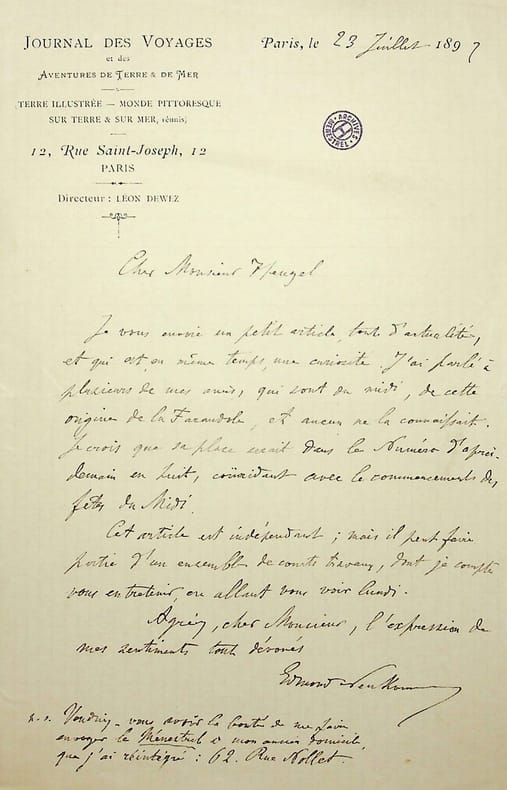 JOURNAL DES VOYAGES
et des
AVENTURES DE TERRE & DE MER
(TERRE ILLUSTRÉE — MONDE PITTORESQUE
SUR TERRE & SUR MER, réunis)
12, Rue Saint-Joseph, 12
PARIS
Directeur : LÉON DEWEZ
Paris, le 23 Juillet 1897
ARCHIVES
MENESTREL
H
Cher Monsieur Heugel
Je vous envoie un petit article, tout d'actualité,
et qui est, en même temps, une curiosité. J'ai parlé à
plusieurs de mes amis, qui sont du midi, de cette
origine de la Farandole, et aucun ne la connaissait.
Je crois que sa place serait dans le Numéro d'après-
demain en huit, coïncidant avec le commencement des
fêtes du Midi.
Cet article est indépendant ; mais il peut faire
partie d'un ensemble de courts travaux, dont je compte
vous entretenir, en allant vous voir lundi.
Agréez, cher Monsieur, l'expression de
mes sentiments tout dévoués
Edmond Neukomm
n. s. Voudriez-vous avoir la bonté de me faire
envoyer le Ménestrel à mon ancien domicile,
que j'ai réintégré : 62. Rue Nollet.